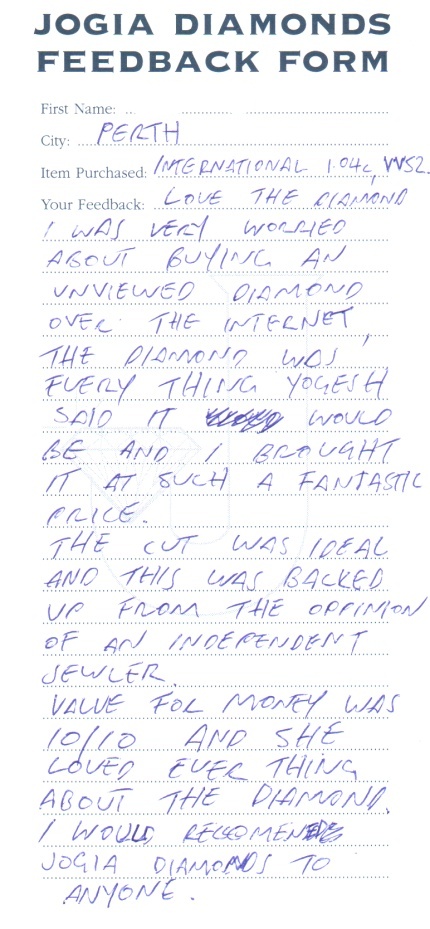 JOGIA DIAMONDS
FEEDBACK FORM
First Name:
City: PERTH
Item Purchased: INTERNATIONAL 1.04c, VVS2.
Your Feedback: LOVE THE DIAMOND
I WAS VERY WORRIED
ABOUT BUYING AN
UNVIEWED DIAMOND
OVER THE INTERNET,
THE DIAMOND WAS
EVERY THING YOGESH
SAID IT WOULD
BE AND I BROUGHT
IT AT SUCH A FANTASTIC
PRICE.
THE CUT WAS IDEAL
AND THIS WAS BACKED
UP FROM THE OPPINION
OF AN INDEPENDENT
JEWLER.
VALUE FOR MONEY WAS
10/10 AND SHE
LOVED EVER THING
ABOUT THE DIAMOND.
I WOULD RECCOMEND
JOGIA DIAMONDS TO
ANYONE.